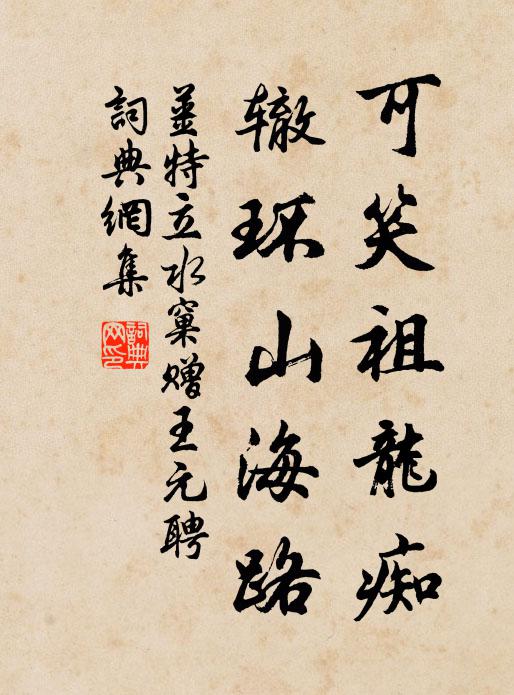 可笑祖龍痴
辙环山海路
姜特立水窠赠王元聘
詞典網集
詞典網印